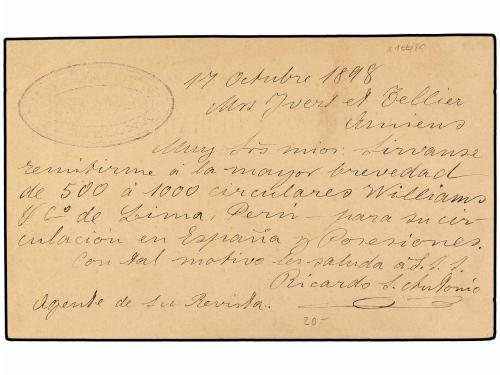 17 Octubre 1898
Mrs Yvert et Tellier
Amiens
Muy Srs mios: Sirvanse
remitirme á la mayor brevedad
de 500 á 1000 circulares Williams
& Cº de Lima, Perú - para su cir-
culación en España y Posesiones.
Con tal motivo les saluda á S. S. S.
Ricardo S. Antonio
Agente de su Revista.
20-